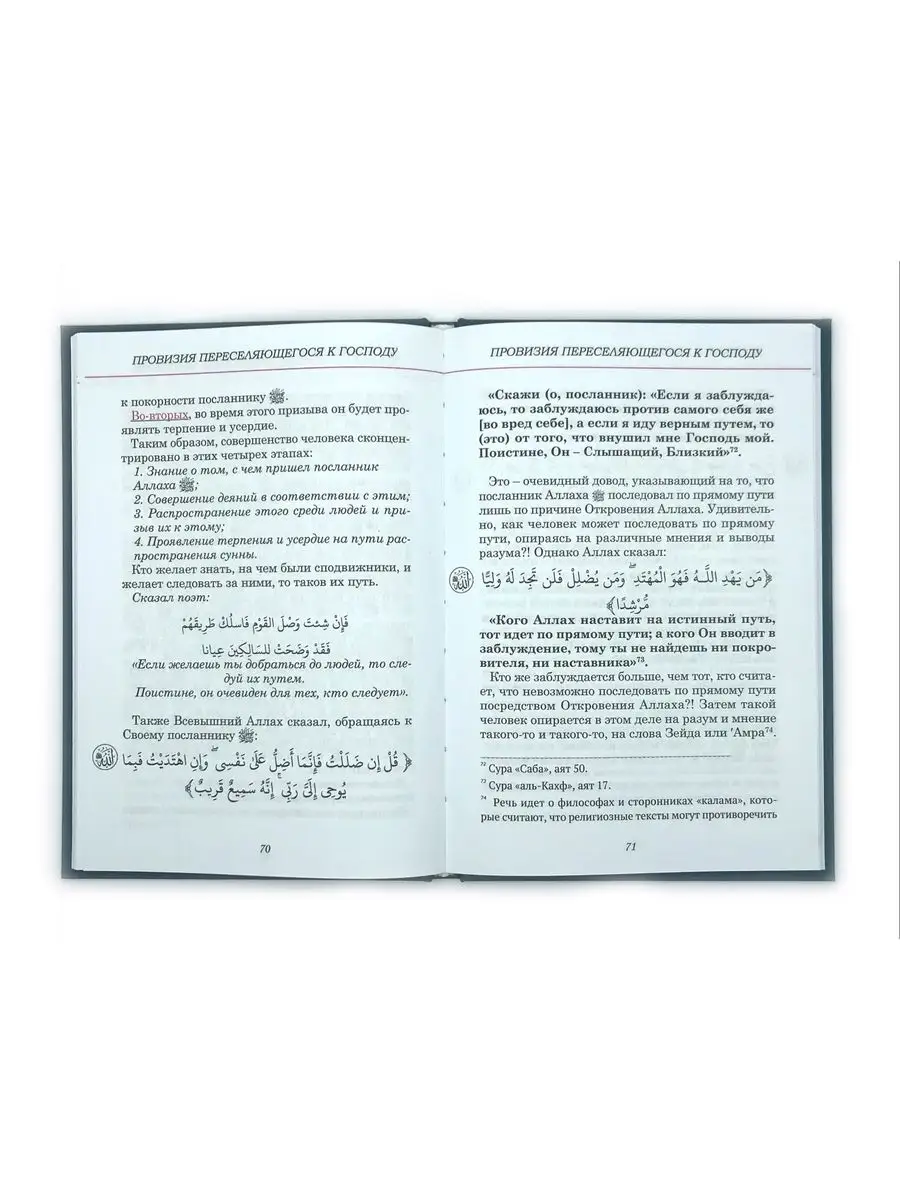 ПРОВИЗИЯ ПЕРЕСЕЛЯЮЩЕГОСЯ К ГОСПОДУ
к покорности посланнику ﷺ.
Во-вторых, во время этого призыва он будет про-
являть терпение и усердие.
Таким образом, совершенство человека сконцен-
трировано в этих четырех этапах:
1. Знание о том, с чем пришел посланник
Аллаха ﷺ;
2. Совершение деяний в соответствии с этим;
3. Распространение этого среди людей и при-
зыв их к этому;
4. Проявление терпения и усердие на пути рас-
пространения сунны.
Кто желает знать, на чем были сподвижники, и
желает следовать за ними, то таков их путь.
Сказал поэт:
فَإِنْ شِئتَ وَصْلَ القَوْمِ فَاسلُكْ طَرِيقَهُمْ
فَقَدْ وَضَحَتْ للسَالِكِينَ عِيانا
«Если желаешь ты добраться до людей, то сле-
дуй их путем.
Поистине, он очевиден для тех, кто следует».
Также Всевышний Аллах сказал, обращаясь к
Своему посланнику ﷺ:
﴿ قُلْ إِن ضَلَلْتُ فَإِنَّمَا أَضِلُّ عَلَىٰ نَفْسِي ۖ وَإِنِ اهْتَدَيْتُ فَبِمَا
يُوحِي إِلَيَّ رَبِّي ۚ إِنَّهُ سَمِيعٌ قَرِيبٌ﴾
70
ПРОВИЗИЯ ПЕРЕСЕЛЯЮЩЕГОСЯ К ГОСПОДУ
«Скажи (о, посланник): «Если я заблужда-
юсь, то заблуждаюсь против самого себя же
[во вред себе], а если я иду верным путем, то
(это) от того, что внушил мне Господь мой.
Поистине, Он – Слышащий, Близкий»⁷².
Это – очевидный довод, указывающий на то, что
посланник Аллаха ﷺ последовал по прямому пути
лишь по причине Откровения Аллаха. Удивитель-
но, как человек может последовать по прямому
пути, опираясь на различные мнения и выводы
разума?! Однако Аллах сказал:
﴿مَن يَهْدِ اللَّـهُ فَهُوَ الْمُهْتَدِ ۖ وَمَن يُضْلِلْ فَلَن تَجِدَ لَهُ وَلِيًّا
مُّرْشِدًا﴾
«Кого Аллах наставит на истинный путь,
тот идет по прямому пути; а кого Он вводит в
заблуждение, тому ты не найдешь ни покро-
вителя, ни наставника»⁷³.
Кто же заблуждается больше, чем тот, кто счита-
ет, что невозможно последовать по прямому пути
посредством Откровения Аллаха?! Затем такой
человек опирается в этом деле на разум и мнение
такого-то и такого-то, на слова Зейда или 'Амра⁷⁴.
⁷² Сура «Саба», аят 50.
⁷³ Сура «аль-Кахф», аят 17.
⁷⁴ Речь идет о философах и сторонниках «калама», кото-
рые считают, что религиозные тексты могут противоречить
71